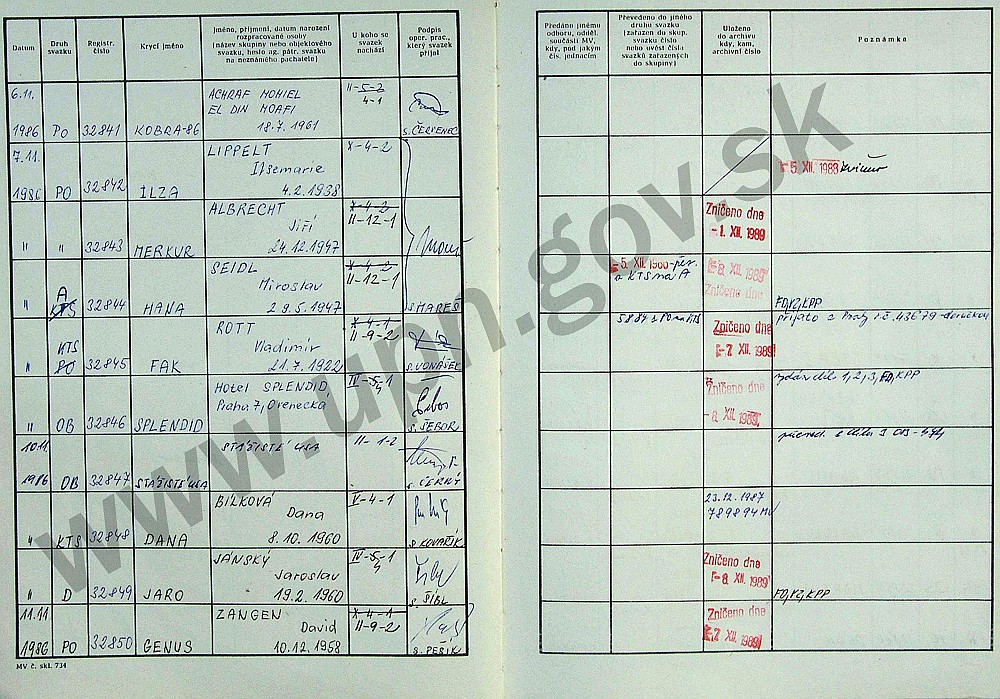 Datum
Druh svazku
Registr. číslo
Krycí jméno
Jméno, příjmení, datum narození
rozpracované osoby
(název skupiny nebo objektového
svazku, heslo ag. pátr. svazku
na neznámého pachatele)
U koho se
svazek
nachází
Podpis
oper. prac.,
který svazek
přijal
6.11.
1986 PO 32841 KOBRA-86
ACHRAF MOHIEL
EL DIN MOAFI
18.7.1961
II-5-2
4-1
s. ČERVENEC
7.11.
1986 PO 32842 ILZA
LIPPELT
Ilsemarie
4.2.1938
X-4-2
" " 32843 MERKUR
ALBRECHT
Jiří
24.12.1947
X-4-2
II-12-1
" KTS A 32844 HANA
SEIDL
Miroslav
29.5.1947
X-4-2
II-12-1
s. MAREŠ
" KTS PO 32845 FAK
ROTT
Vladimír
21.7.1922
X-4-1
II-9-2
s. VONÁŠEK
" OB 32846 SPLENDID
Hotel SPLENDID,
Praha 7, Ovenecká
IV-5-1
s. ŠEBOR
10.11.
1986 OB 32847 STÁŽISTÉ USA
STÁŽISTÉ USA
II-1-2
s. ČERNÝ
" KTS 32848 DANA
BÍLKOVÁ
Dana
8.10.1960
V-4-1
s. KOVAŘÍK
" D 32849 JARO
JÁNSKÝ
Jaroslav
19.2.1960
IV-5-1
s. ŠÍBL
11.11.
1986 PO 32850 GENUS
ZANGEN
David
10.12.1958
X-4-1
II-9-2
s. PEŠIK
MV č. skl. 734
Předáno jinému
odboru, odděl.
součásti MV,
kdy, pod jakým
čís. jednacím
Převedeno do jiného
druhu svazku
(zařazen do skup.
svazku číslo
nebo uvést čísla
svazků zařazených
do skupiny)
Uloženo
do archivu
kdy, kam,
archivní číslo
Poznámka
- 5. XII. 1988
Zničeno dne
- 1. XII. 1989
- 5. XII. 1988
KTS na A
- 8. XII. 1989
Zničeno dne
FO, KPP
5884 z PO na KTS
Zničeno dne
- 7. XII. 1989
přijato z Prahy
Zničeno dne
- 8. XII. 1989
1, 2, 3, KPP
23.12.1987
789894 MV
Zničeno dne
- 8. XII. 1989
FO, KPP
Zničeno dne
- 7. XII. 1989
www.upn.gov.sk